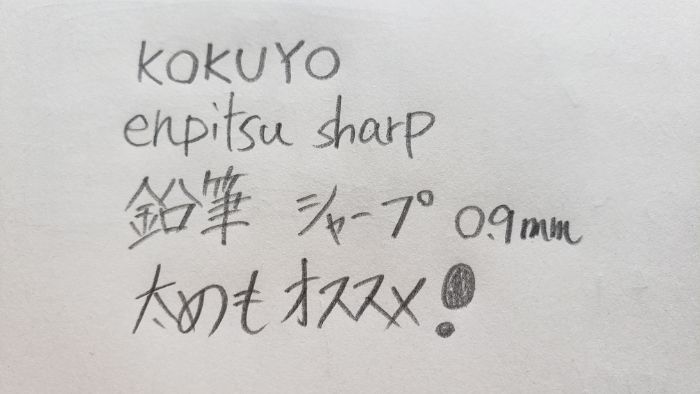 KOKUYO
enpitsu sharp
鉛筆 シャープ 0.9mm
太めもオススメ！